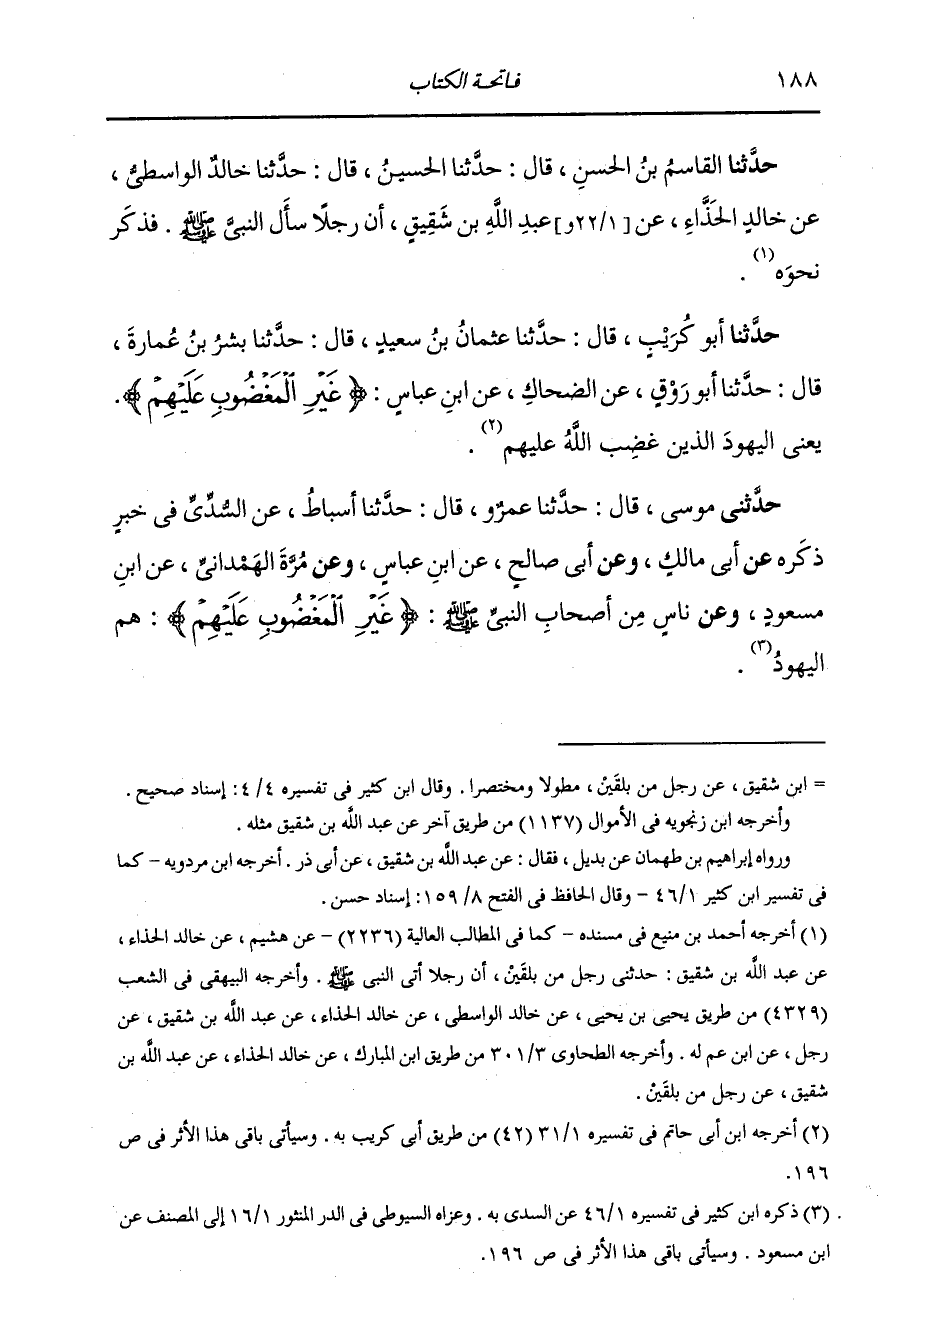 ١٨٨
فاتحة الكتاب
حدَّثنا القاسمُ بنُ الحسنِ ، قال : حدَّثنا الحسينُ ، قال : حدَّثنا خالدٌ الواسطىُّ ،
عن خالدٍ الحَذَّاءِ ، عن [٢٢/١و] عبدِ اللَّهِ بن شَقِيقٍ ، أن رجلًا سأَل النبىَّ ﷺ . فذكَر
نحوَه (١) .
حدَّثنا أبو كُرَيْبٍ ، قال : حدَّثنا عثمانُ بنُ سعيدٍ ، قال : حدَّثنا بشرُ بنُ عُمارةَ ،
قال : حدَّثنا أبو رَوْقٍ ، عن الضحاكِ ، عن ابنِ عباسٍ : ﴿ غَيْرِ الْمَغْضُوبِ عَلَيْهِمْ ﴾ .
يعنى اليهودَ الذين غضِب اللَّهُ عليهم (٢) .
حدَّثنى موسى ، قال : حدَّثنا عمرٌو ، قال : حدَّثنا أسباطُ ، عن السُّدِّىِّ فى خبرٍ
ذكَره عن أبى مالكٍ ، وعن أبى صالحٍ ، عن ابنِ عباسٍ ، وعن مُرَّةَ الهَمْدانىِّ ، عن ابنِ
مسعودٍ ، وعن ناسٍ مِن أصحابِ النبىِّ ﷺ : ﴿ غَيْرِ الْمَغْضُوبِ عَلَيْهِمْ ﴾ : هم
اليهودُ (٣) .
= ابن شقيق ، عن رجل من بلقَيْن ، مطولا ومختصرا . وقال ابن كثير فى تفسيره ٤/ ٤: إسناد صحيح .
وأخرجه ابن زنجويه فى الأموال (١١٣٧) من طريق آخر عن عبد اللَّه بن شقيق مثله .
ورواه إبراهيم بن طهمان عن بديل ، فقال : عن عبد اللَّه بن شقيق ، عن أبى ذر . أخرجه ابن مردويه - كما
فى تفسير ابن كثير ٤٦/١ - وقال الحافظ فى الفتح ٨/ ١٥٩: إسناد حسن .
(١) أخرجه أحمد بن منيع فى مسنده - كما فى المطالب العالية (٢٢٣٦) - عن هشيم ، عن خالد الحذاء ،
عن عبد اللَّه بن شقيق : حدثنى رجل من بلقَيْن ، أن رجلا أتى النبى ﷺ . وأخرجه البيهقى فى الشعب
(٤٣٢٩) من طريق يحيى بن يحيى ، عن خالد الواسطى ، عن خالد الحذاء ، عن عبد اللَّه بن شقيق ، عن
رجل ، عن ابن عم له . وأخرجه الطحاوى ٣٠١/٣ من طريق ابن المبارك ، عن خالد الحذاء ، عن عبد اللَّه بن
شقيق ، عن رجل من بلقَيْن .
(٢) أخرجه ابن أبى حاتم فى تفسيره ٣١/١ (٤٢) من طريق أبى كريب به . وسيأتى باقى هذا الأثر فى ص
١٩٦.
(٣) ذكره ابن كثير فى تفسيره ٤٦/١ عن السدى به . وعزاه السيوطى فى الدر المنثور ١٦/١ إلى المصنف عن
ابن مسعود . وسيأتى باقى هذا الأثر فى ص ١٩٦.